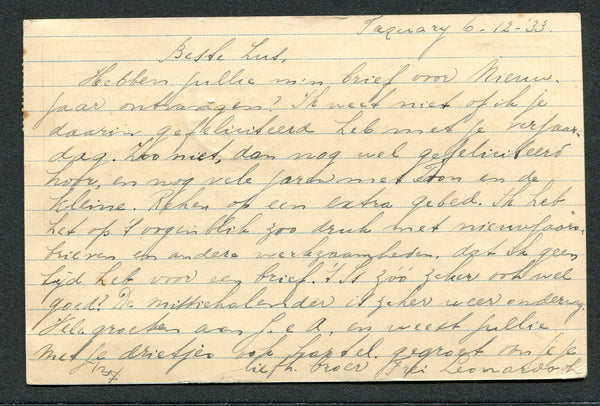 Taquary 6-12-'33.
Beste Zus,
Hebben jullie mn brief voor Nieuw-
jaar ontvangen? Ik weet niet of ik je
daarin gefeliciteerd heb met je verjaar-
dag. Zoo niet, dan nog wel gefeliciteerd
hoor, en nog vele jaren met Toon en de
kleine. Reken op een extra gebed. Ik heb
het op 't oogenblik zoo druk met nieuwjaars-
brieven en andere werkzaamheden, dat ik geen
tijd heb voor een brief. 't Is zóó zeker ook wel
goed? De missiekalender is zeker weer onderweg.
Vele groeten aan J. e A. en weest jullie
met je drietjes gegroet van je je
liefh. broer Frei Leonardo